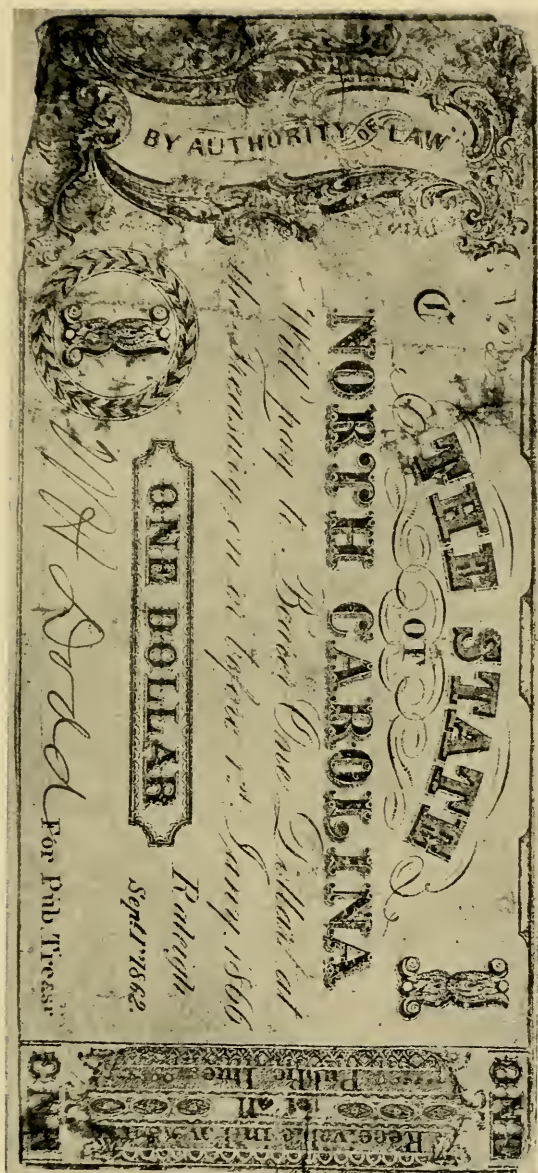 BY AUTHORITY OF LAW
C
THE STATE
OF
NORTH CAROLINA
Will pay to Bearer One Dollar at
the Treasury on or before 1st Jany. 1866
ONE DOLLAR
Raleigh
Sept. 1st 1862.
W H Dodd For Pub. Treasr
ONE
Receivable in Payment
of all
Public Dues
ONE